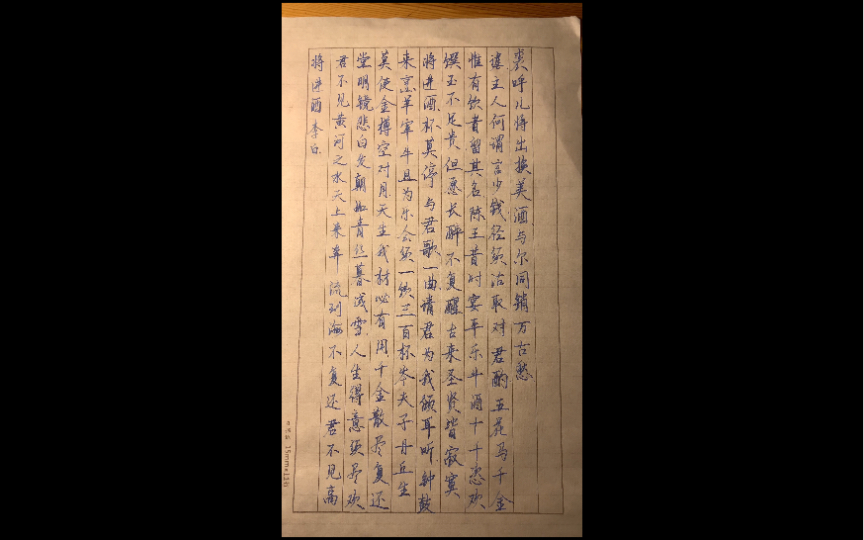 将进酒 李白
君不见黄河之水天上来奔流到海不复还君不见高
堂明镜悲白发朝如青丝暮成雪人生得意须尽欢
莫使金樽空对月天生我材必有用千金散尽复还
来烹羊宰牛且为乐会须一饮三百杯岑夫子丹丘生
将进酒杯莫停与君歌一曲请君为我倾耳听钟鼓
馔玉不足贵但愿长醉不复醒古来圣贤皆寂寞
惟有饮者留其名陈王昔时宴平乐斗酒十千恣欢
谑主人何谓言少钱径须沽取对君酌五花马千金
裘呼儿将出换美酒与尔同销万古愁